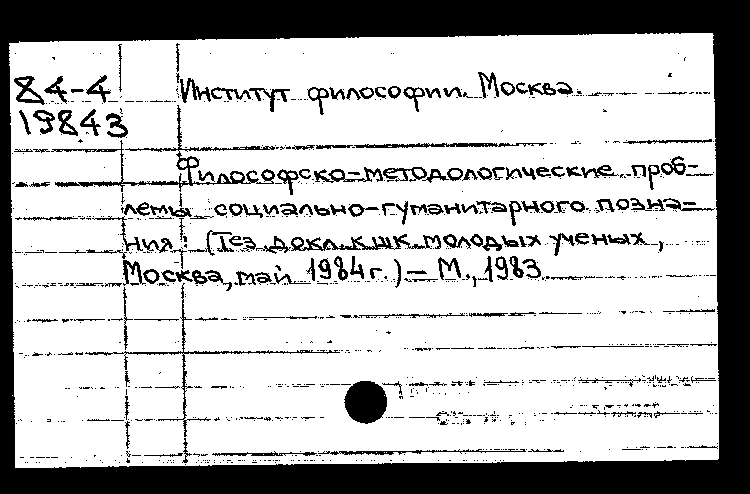 84-4 Институт философии. Москва.
19843
Философско-методологические проб-
лемы социально-гуманитарного позна-
ния: (Тез. докл. к шк. молодых ученых,
Москва, май 1984 г.) – М., 1983.